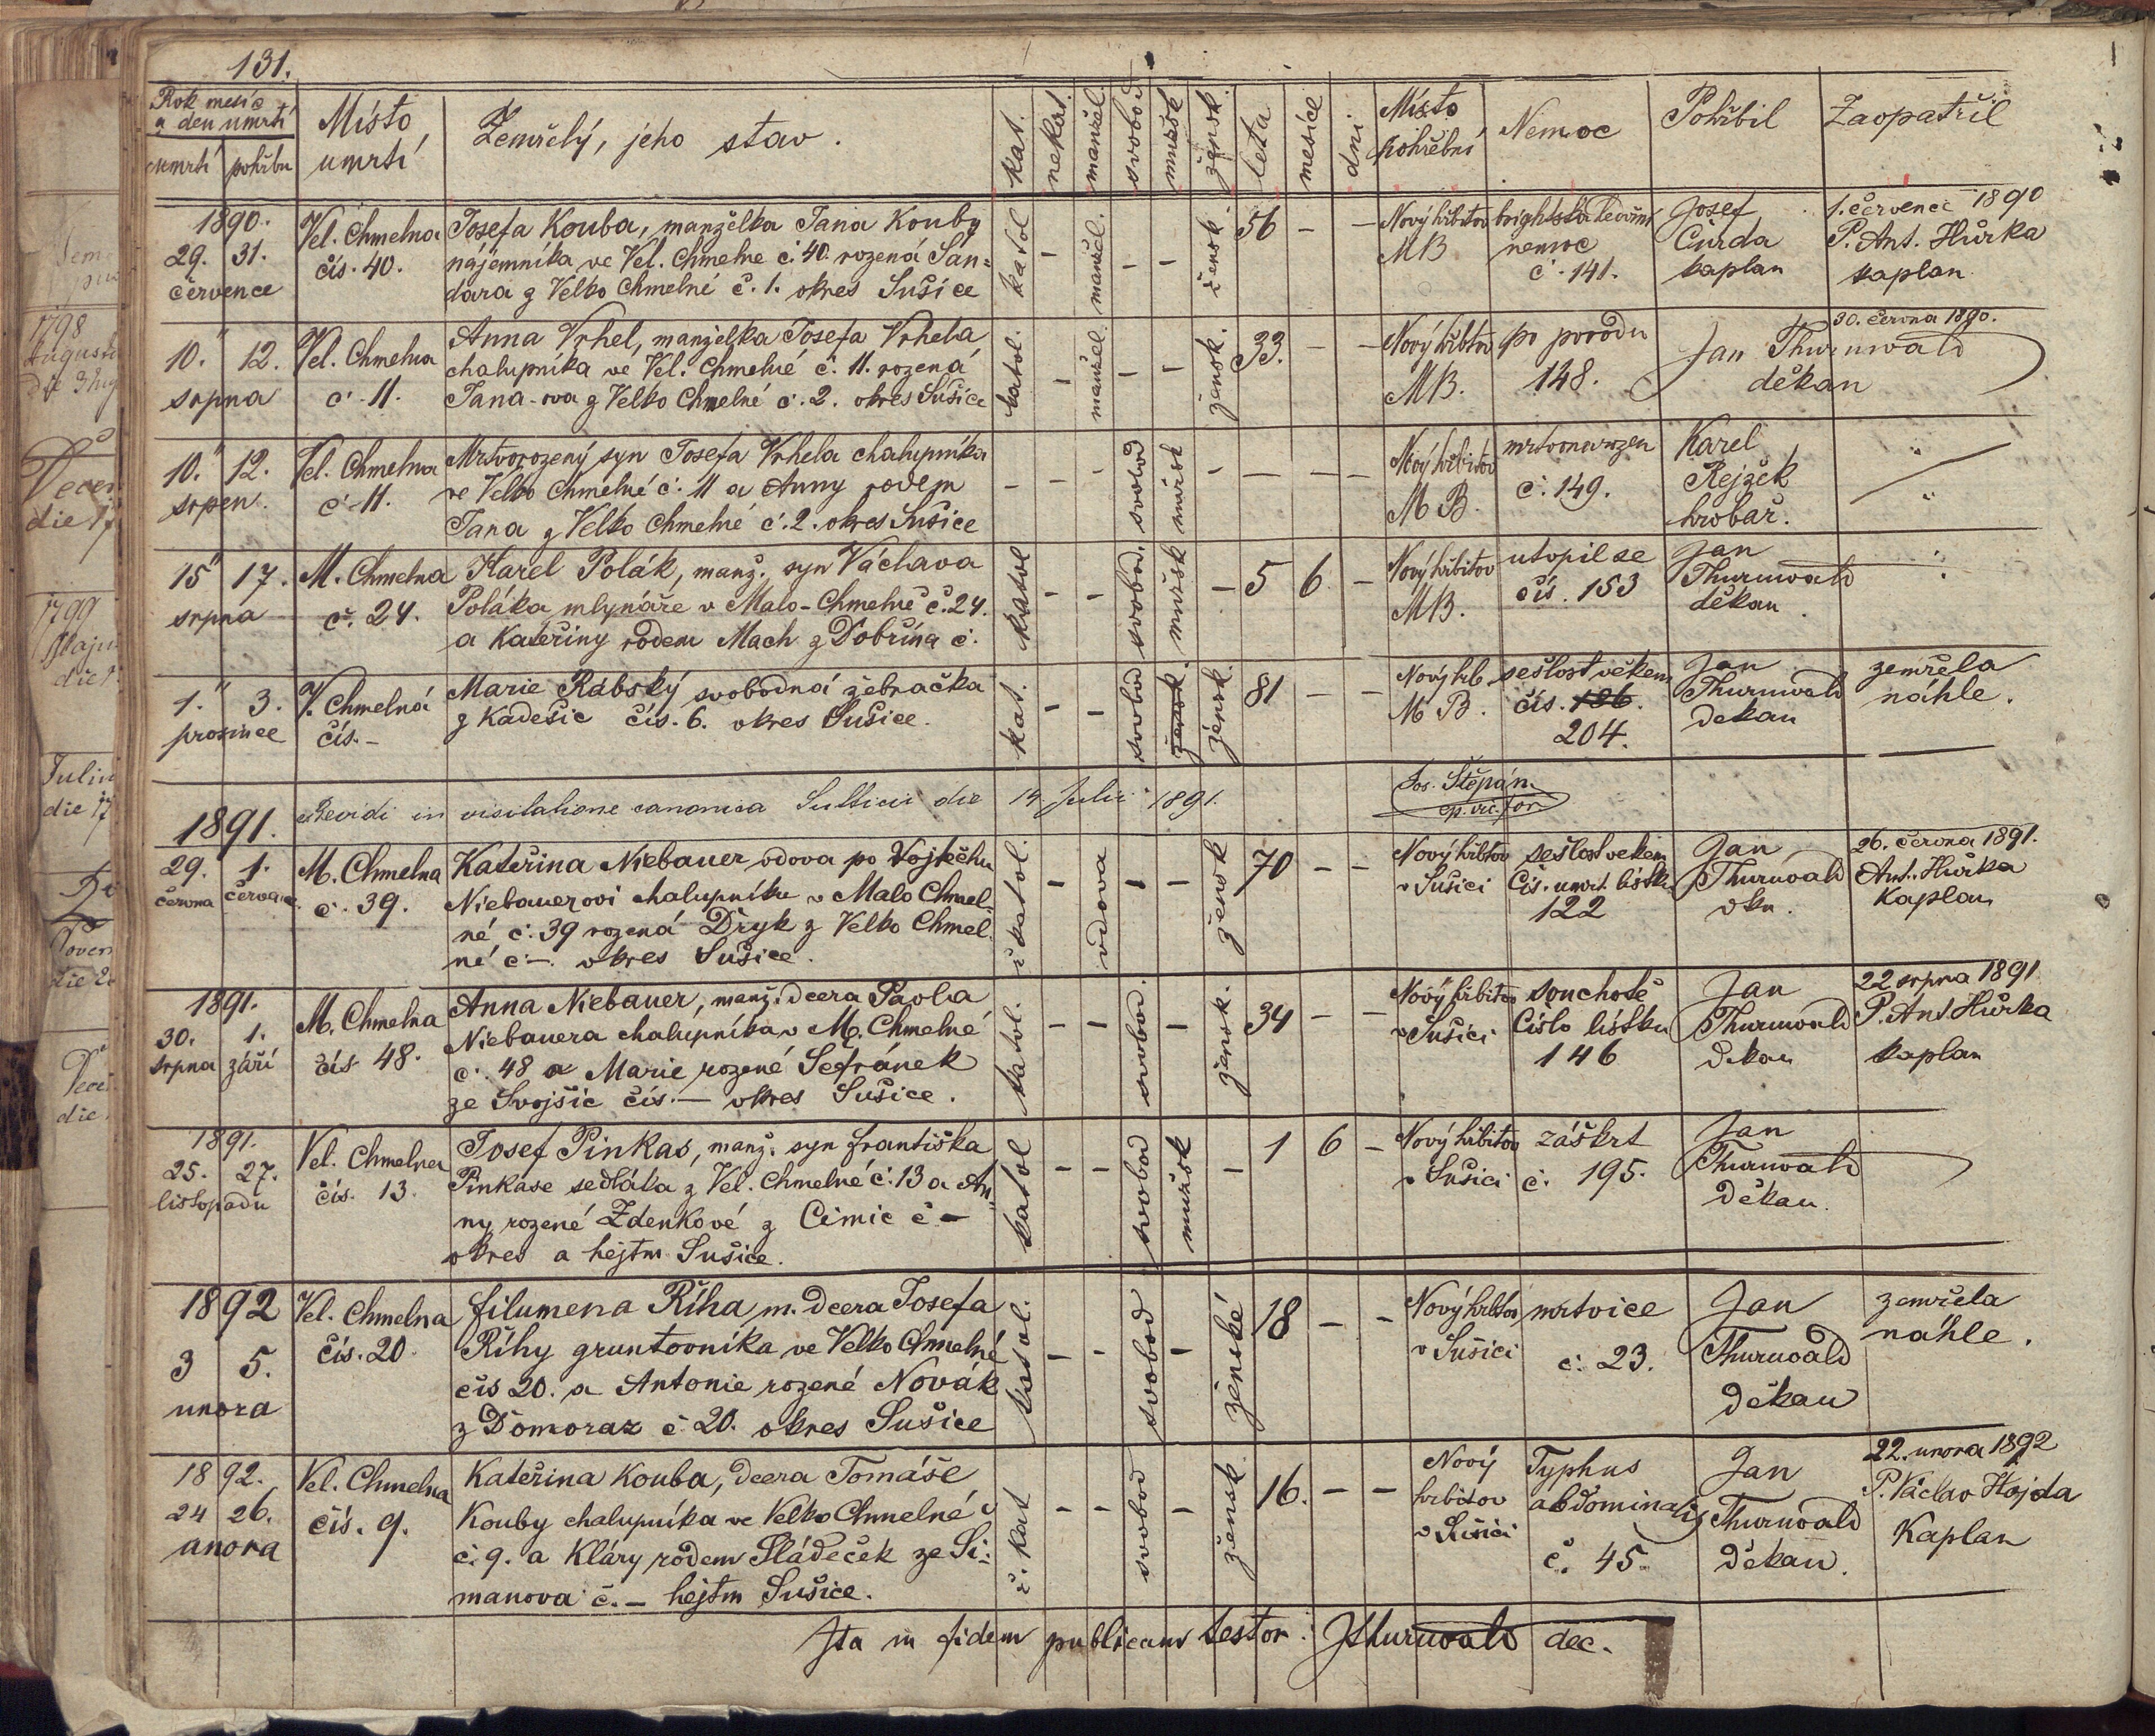 131.
Rok mesíc a den umrtí
umrtí pohřbu
Místo umrtí
Zemřelý, jeho stav.
kat. nekat. manžel. svobod mužsk žensk. leta mesíce dni
Místo pohřební
Nemoc
Pohřbil
Zaopatřil
1890.
29. 31.
července
Vel. Chmelna
čís. 40.
Josefa Kouba, manželka Jana Kouby
nájemníka ve Vel. Chmelne č. 40. rozená Šan=
dara z Velko Chmelné č. 1. okres Sušice
katol – manžel. – – žensk. 56 – –
Nový hřbitov
MB
nemoc
č. 141.
Josef
Čurda
kaplan
1. červenci 1890
P. Ant. Hůrka
kaplan.
10. 12.
srpna
Vel. Chmelna
č. 11.
Anna Vrhel, manželka Josefa Vrhela
chalupníka ve Vel. Chmelné č. 11. rozená
Jana-rova z Velko Chmelné č. 2. okres Sušice
katol. – manžel. – – žensk. 33. – –
Nový hřbitov
MB.
po porodu
148.
30. června 1890.
Jan Thurnwald
děkan
10. 12.
srpen.
Vel. Chmelna
č. 11.
Mrtvorozený syn Josefa Vrhela chalupníka
ve Velko Chmelné č. 11 a Anny rodem
Jana z Velko Chmelné č. 2. okres Sušice
– – – svobod mužsk – – – –
Nový hřbitov
MB.
mrtvonarozen
č. 149.
Karel
Rejžek
hrobař.
15 17.
srpna
M. Chmelna
č. 24.
Karel Polák, manž. syn Václava
Poláka mlynáře v Malo-Chmelné č. 24.
a Kateřiny rodem Mach z Dobřína č.
katol – – svobod. mužsk – 5 6 –
Nový hřbitov
MB.
utopil se
čís. 153
Jan
Thurnwald
děkan
1. 3.
prosince
V. Chmelná
čís. –
Marie Rábský svobodná žebračka
z Kadešic čís. 6. okres Sušice.
kat. – – svobod žensk. žensk. 81 – –
Nový hřb.
MB.
sešlost věkem
čís. 186.
204.
Jan
Thurnwald
dekan
zemřela
náhle.
1891.
Revidi in visitatione canonica Sutticii die 14 Julii 1891.
Jos. Štěpán
p. vic. for.
29. 1.
června července
M. Chmelna
č. 39.
Kateřina Niebauer vdova po Vojtěchu
Niebauerovi chalupníku v Malo Chmel-
né č. 39 rozená Dryk z Velko Chmel
né č –. okres Sušice.
ř katol. – vdova – – žensk 70 – –
Nový hřbitov
v Sušici
sešlost vekem
Čís. umrt. lístku
122
Jan
Thurnwald
dkn.
26. června 1891.
Ant. Hůrka
Kaplan
1891.
30. 1.
srpna září
M. Chmelna
čís. 48.
Anna Niebauer, manž. dcera Pavla
Niebauera chalupníka v M. Chmelné
č. 48 a Marie rozené Šefránek
ze Svojšic čís. – okres Sušice.
katol. – – svobod. – žensk. 34 – –
Nový hřbitov
v Sušici
souchotě
Číslo lístku
146
Jan
Thurnwald
děkan
22 srpna 1891
P. Ant Hůrka
kaplan
1891.
25. 27.
listopadu
Vel. Chmelna
čís. 13.
Josef Pinkas, manž. syn Františka
Pinkase sedláka z Vel. Chmelné č. 13 a An
ny rozené Zdenkové z Čimic č –
okres a hejtm Sušice.
katol – – svobod mužsk – 1 6 –
Nový hřbitov
v Sušici
záškrt
č. 195.
Jan
Thurnwald
Děkan.
1892
3 5.
unora
Vel. Chmelna
čís. 20.
Filumena Říha m. dcera Josefa
Říhy gruntovníka ve Velko Chmelné
čís 20. a Antonie rozené Novák
z Domoraz č 20. okres Sušice
katol. – – svobod – ženské 18 – –
Nový hřbitov
v Sušici
mrtvice
č. 23.
Jan
Thurnwald
Děkan
zemřela
náhle.
1892.
24 26.
unora
Vel. Chmelna
čís. 9.
Kateřina Kouba, dcera Tomáše
Kouby chalupníka ve Velko Chmelné
č. 9. a Kláry rodem Sládeček ze Ši-
manova č. – hejtm Sušice.
ř. kat – – svobod – žensk. 16. – –
Nový
hřbitov
v Sušici
Typhus
abdominalis
č. 45.
Jan
Thurnwald
Děkan.
22. unora 1892
P. Václav Hojda
Kaplan
Ita in fidem publicam testor: JThurnwald dec.